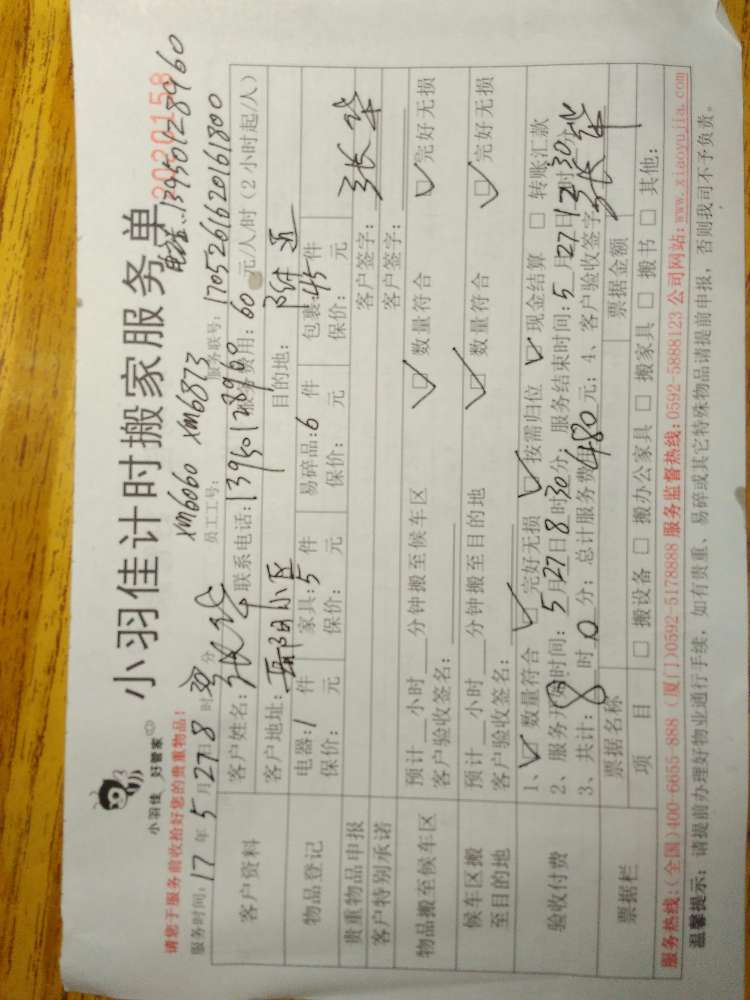 小羽佳计时搬家服务单
2020158
小羽佳 好管家
电话:13950128960
请您于服务前收拾好您的贵重物品!
服务时间:17年5月27日8时30分 员工工号:xm6060 xm6873 服务联号:170526162016 1800
客户资料 客户姓名:张华 联系电话:13950128960 服务费用:60元/人/时(2小时起/人)
客户地址:岳阳小区 目的地:附近
物品登记 电器:1件 家具:5件 易碎品:6件 包裹:45件
保价: 元 保价: 元 保价: 元 保价: 元
贵重物品申报 客户签字:张华
客户特别承诺 客户签字:
物品搬至候车区 预计__小时__分钟搬至候车区 ☑数量符合 ☑完好无损
客户验收签名:
候车区搬至目的地 预计__小时__分钟搬至目的地 ☑数量符合 ☑完好无损
客户验收签名:
验收付费 1、☑数量符合 ☑完好无损 ☑按需归位 ☑现金结算 □转账汇款
2、服务开始时间:5月27日8时30分;服务结束时间:5月27日12时30分
3、共计:8时0分;总计服务费用480元;4、客户验收签字张华
票据栏 票据名称 票据金额
项目 □搬设备 □搬办公家具 □搬家具 □搬书 □其他:
服务热线:(全国)400-6655-888 (厦门)0592-5178888 服务监督热线:0592-5888123 公司网站:www.xiaoyujia.com
温馨提示:请提前办理好物业通行手续,如有贵重、易碎或其它特殊物品请提前申报,否则我司不予负责。